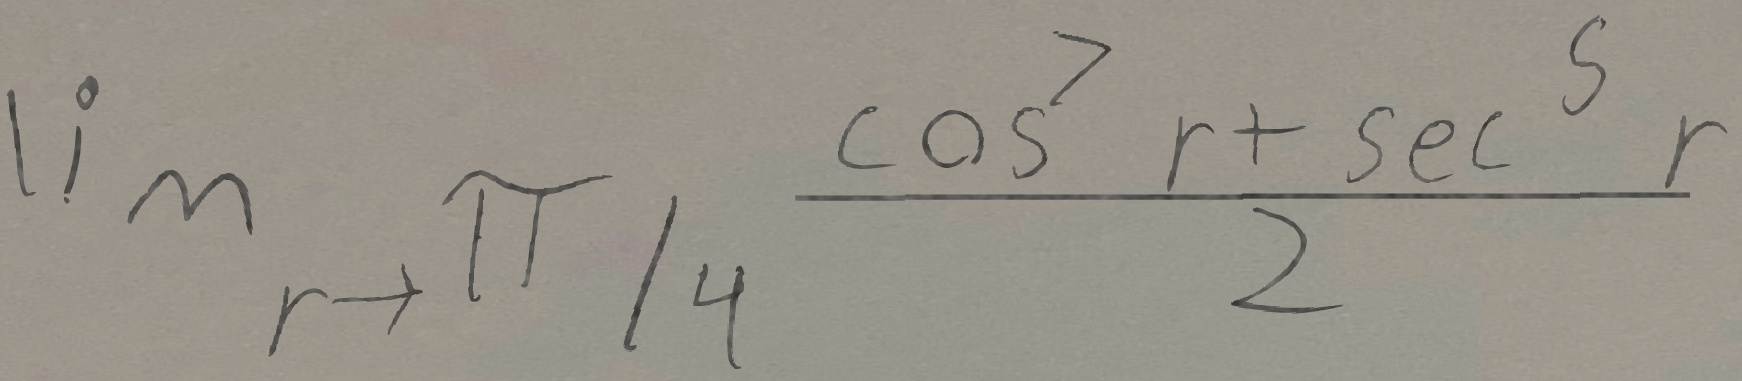 \lim_{r \to \pi/4} \frac{\cos^7 r + \sec^5 r}{2}